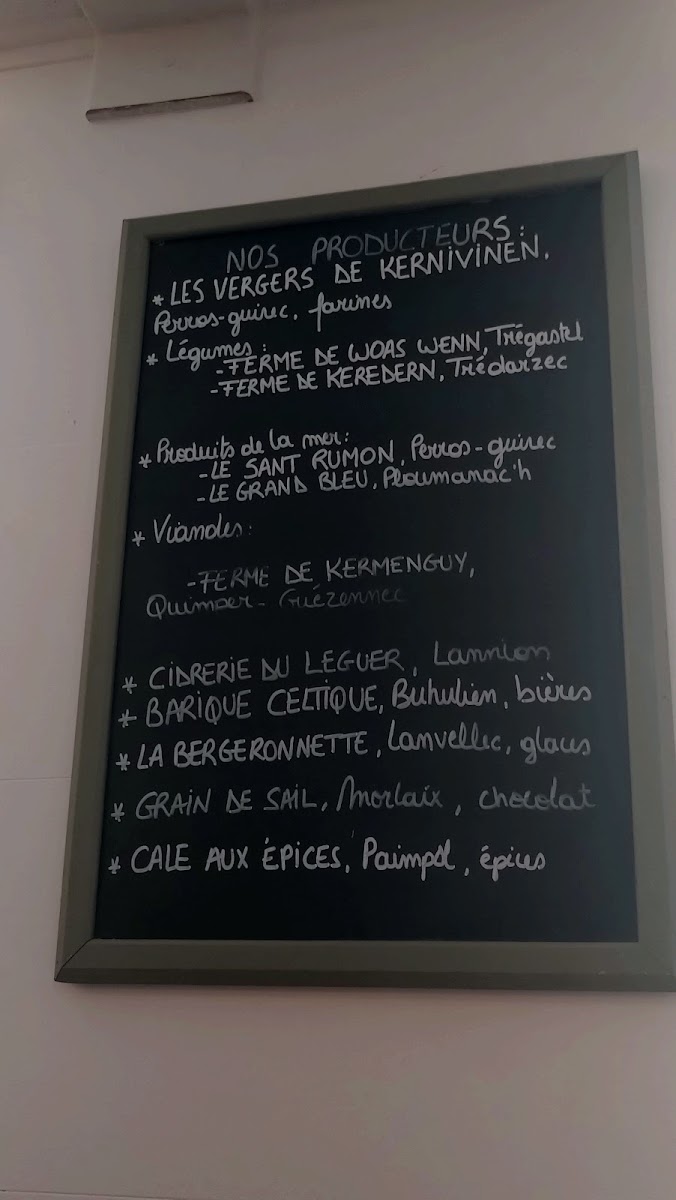 NOS PRODUCTEURS:
* LES VERGERS DE KERNIVINEN,
Perros-guirec, farines
* Légumes:
-FERME DE WOAS WENN, Trégastel
-FERME DE KEREDERN, Trédarzec
* Produits de la mer:
-LE SANT RUMON, Perros-guirec
-LE GRAND BLEU, Ploumanac'h
* Viandes:
-FERME DE KERMENGUY,
Quimper-Guézennec
* CIDRERIE DU LEGUER, Lannion
* BARIQUE CELTIQUE, Buhulien, bières
* LA BERGERONNETTE, Lanvellec, glaces
* GRAIN DE SAIL, Morlaix, chocolat
* CALE AUX ÉPICES, Paimpol, épices